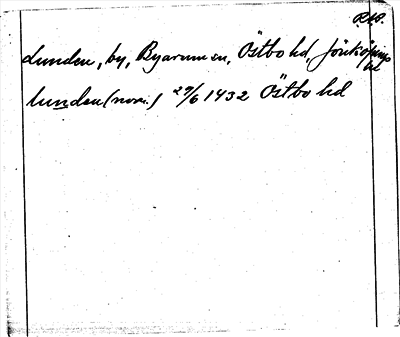 R.A.P.
Lunden, by, Byarums sn, Östbo hd, Jönköpings
lä
lunden (nom.) 29/6 1432 Östbo hd